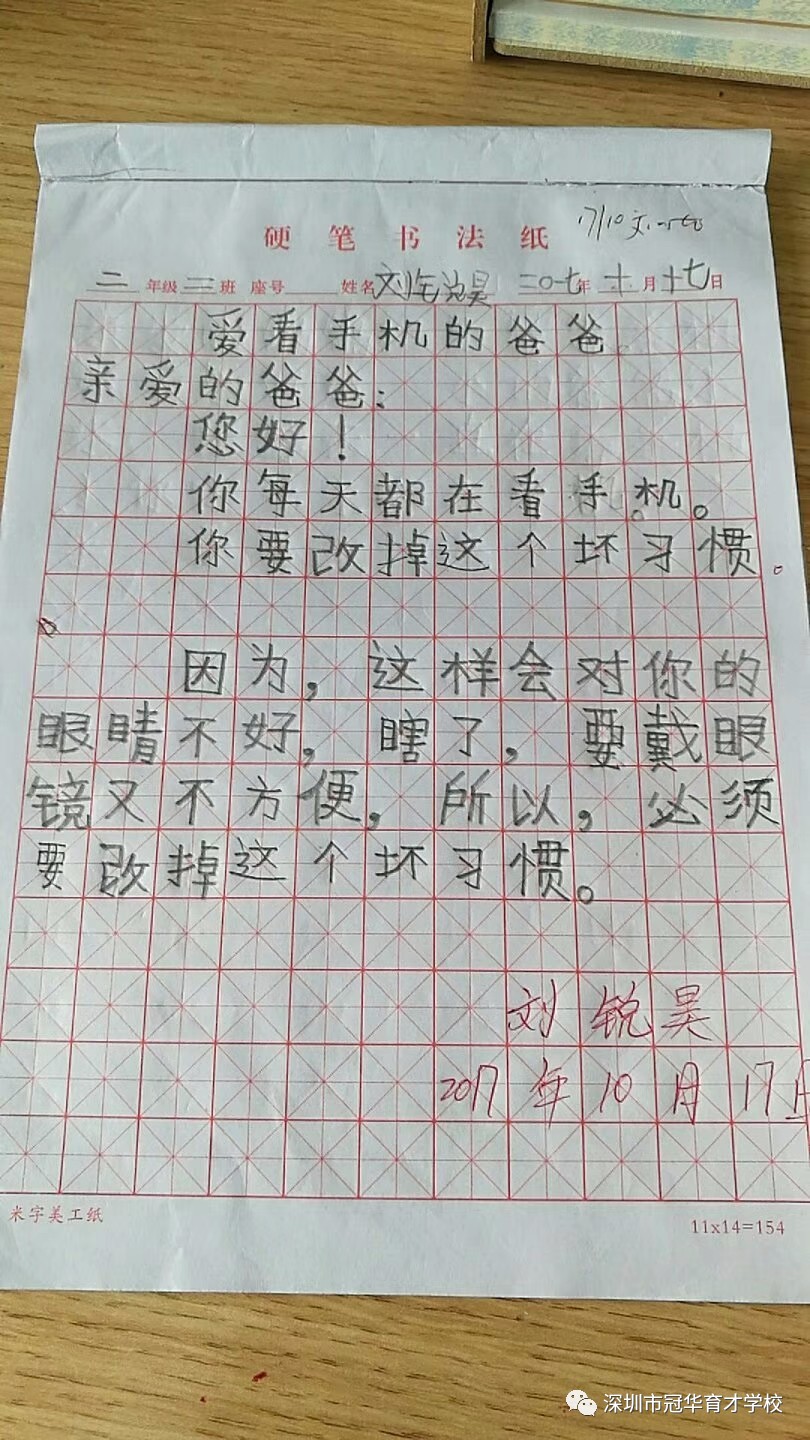 硬笔书法纸
17/10
二年级二班 座号 姓名刘锐昊 二〇一七年十月十七日
爱看手机的爸爸
亲爱的爸爸:
您好!
你每天都在看手机。
你要改掉这个坏习惯。
因为,这样会对你的
眼睛不好,瞎了,要戴眼
镜又不方便,所以,必须
要改掉这个坏习惯。
刘锐昊
2017年10月17日
米字美工纸 11x14=154
深圳市冠华育才学校